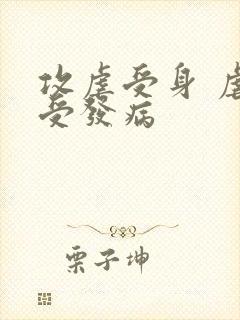 攻虐受身 虐
受發病
栗子坤